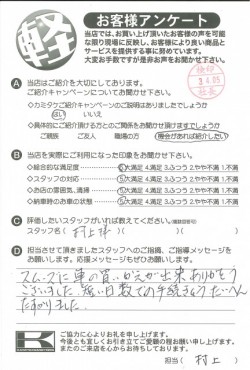 軽
お客様アンケート
当店では、お買い上げ頂いたお客様の声を可能
な限り現場に反映し、お客様により良い商品と
サービスを提供する事に努めています。
大変お手数ですが是非お声をお聞かせ下さい。
A 当店はご紹介を大切にしております。
ご紹介キャンペーンについてお聞かせ下さい。
◇カミタケご紹介キャンペーンのご説明はありましたでしょうか
はい いいえ
◇具体的にご紹介頂ける方との関係をお聞かせ頂けますでしょうか
ご親族 ご友人 職場の方 機会があれば紹介したい
B 当店を実際にご利用になった印象をお聞かせ下さい。
◇総合的な満足度 5大満足 4.満足 3.ふつう 2.やや不満 1.不満
◇スタッフの対応 5大満足 4.満足 3.ふつう 2.やや不満 1.不満
◇お店の雰囲気、清掃 5大満足 4.満足 3.ふつう 2.やや不満 1.不満
◇納車時のお車の状態 5大満足 4.満足 3.ふつう 2.やや不満 1.不満
C 評価したいスタッフがいれば教えてください。
スタッフ名( 村上 )
D 担当させて頂きましたスタッフへのご指摘、ご指導メッセージを
お願いします。応援メッセージもぜひお願いします。
スムーズに車の買いかえが出来ありがとう
ございました 短い日数での手続きょう たいへん
たすかりました
K
ご協力に心よりお礼を申し上げます。
今後とも宜しくお引き立てご愛顧の程お願い申し上げます。
またのご来店を心からお待ちしております。
担当( 村上 )